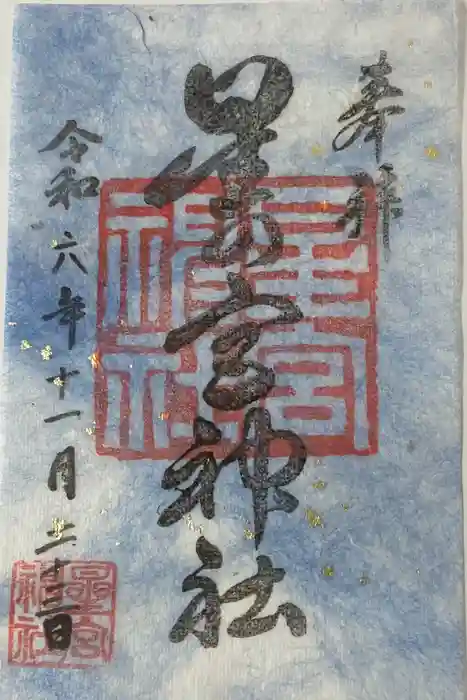 奉拝
星宮神社
令和六年十一月二十三日
星宮神社
星宮神社